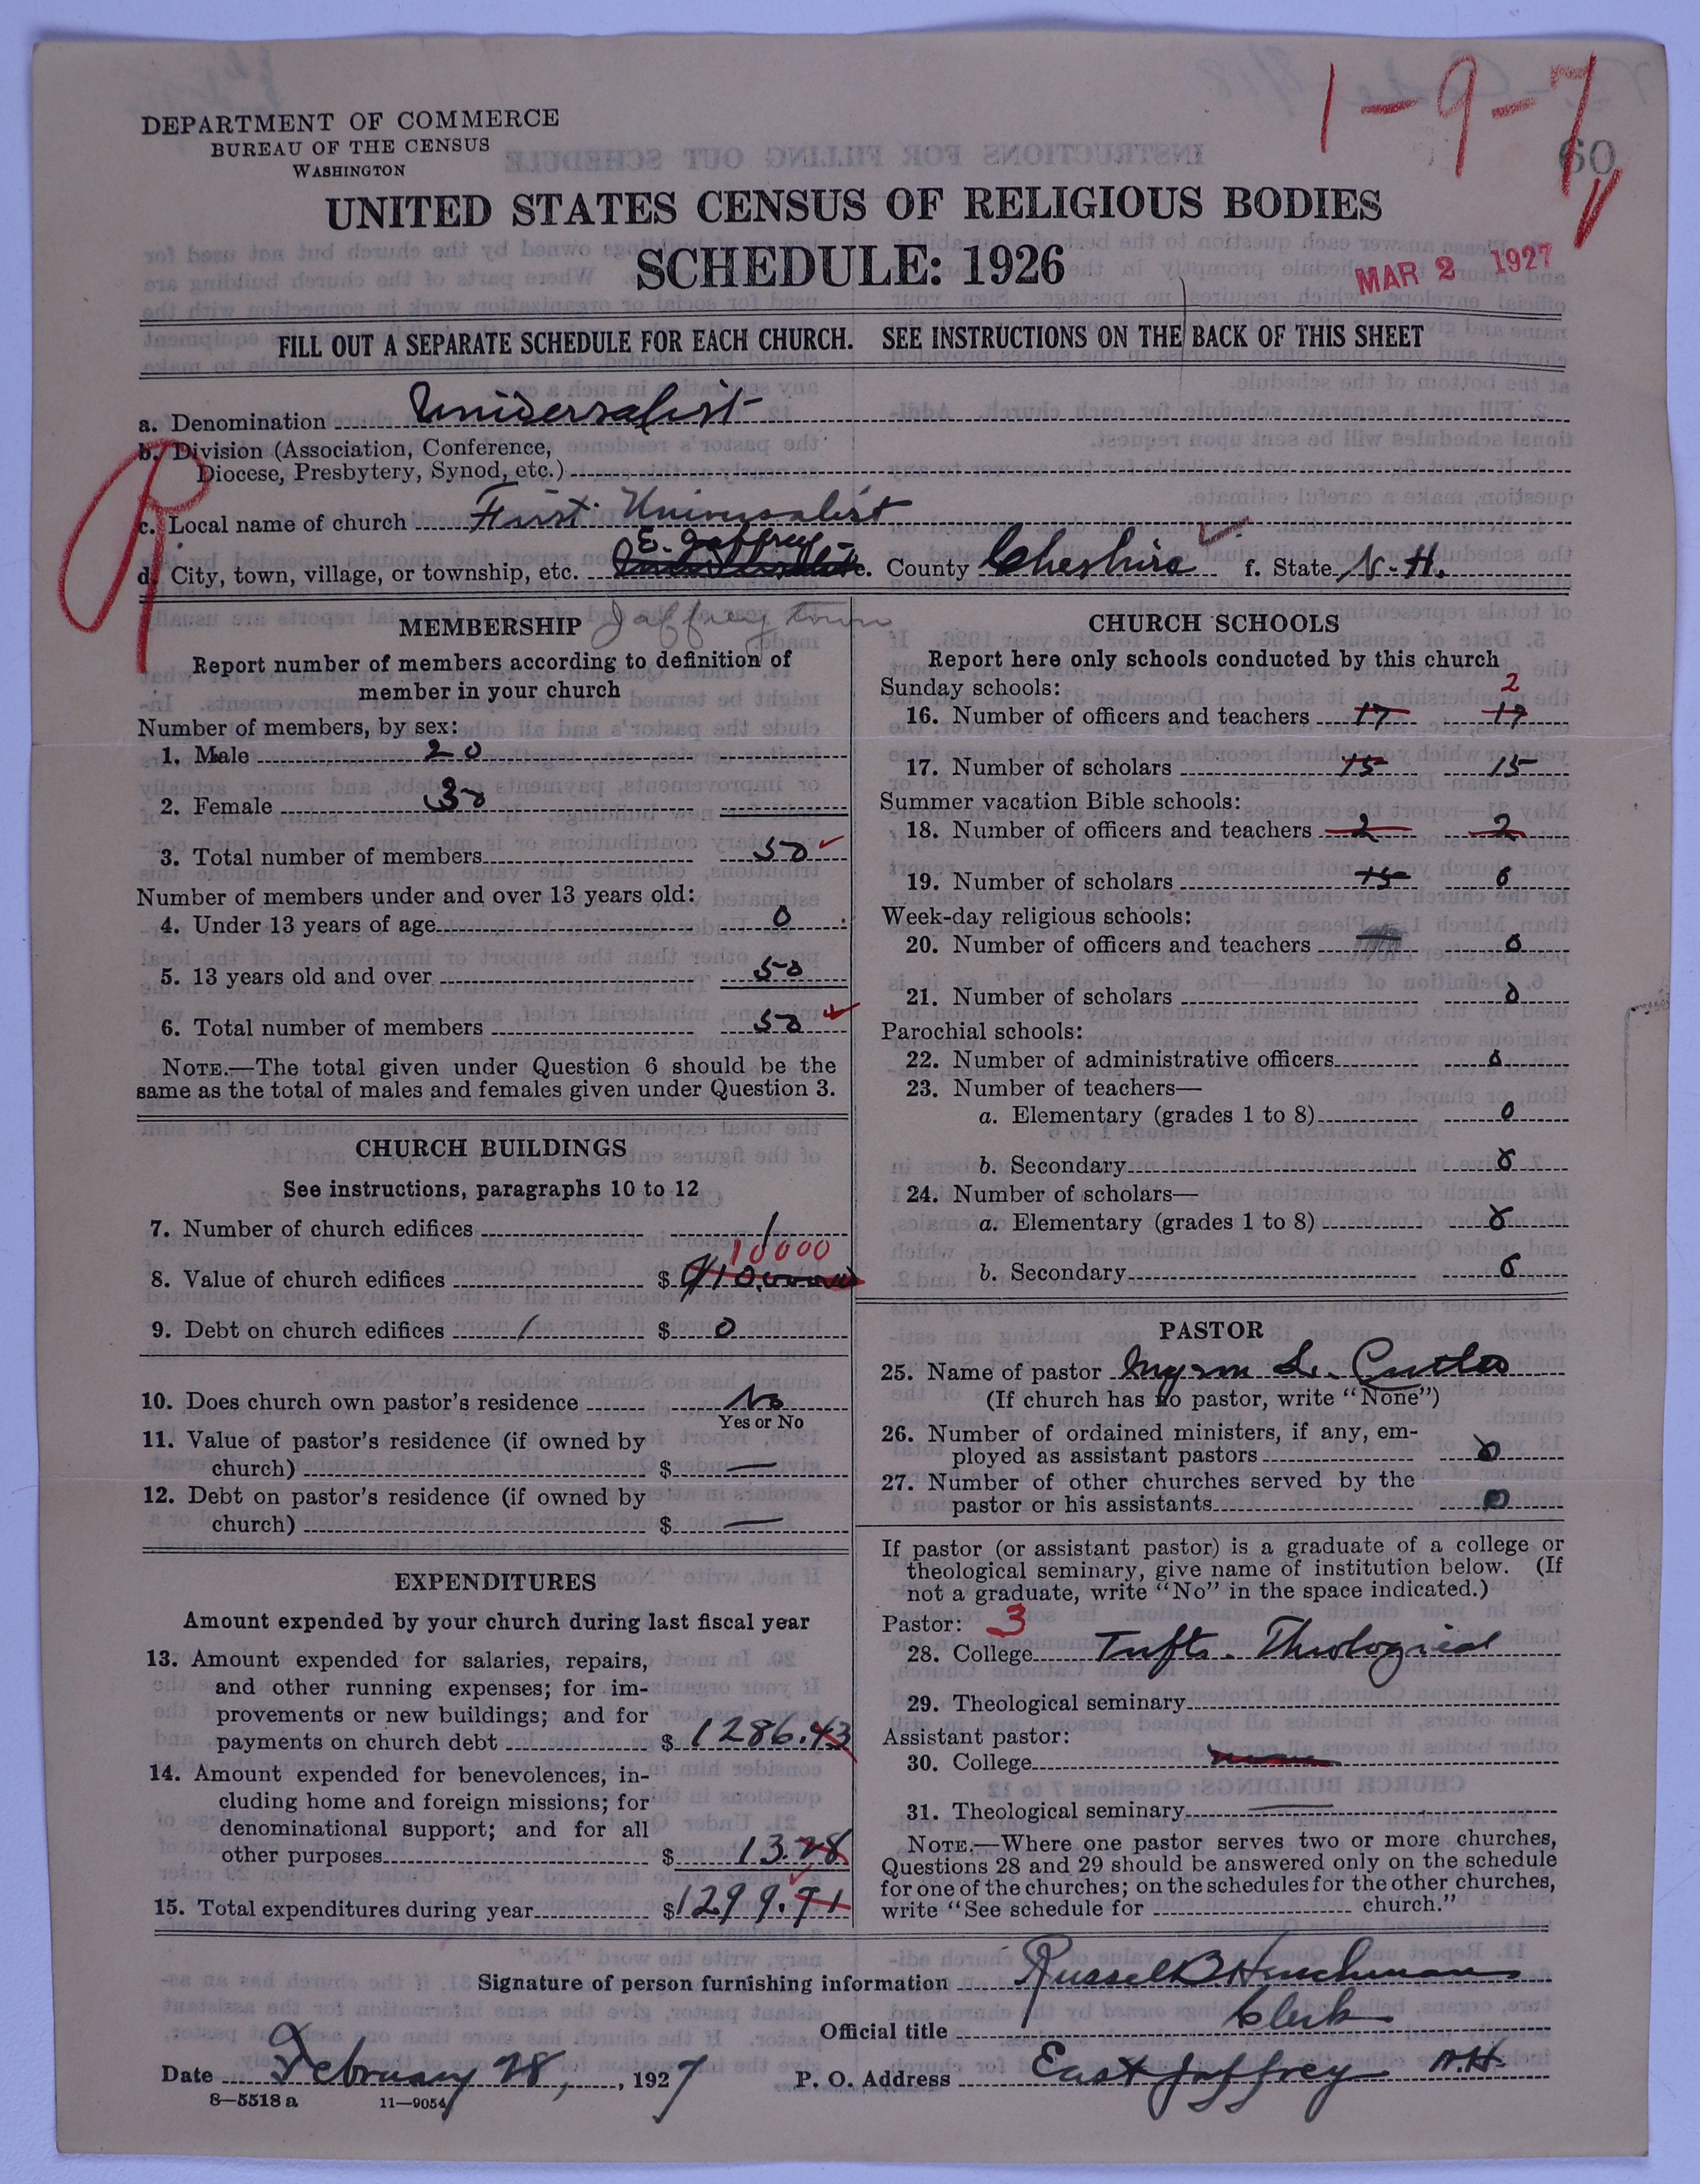 1-9-7
60
DEPARTMENT OF COMMERCE
BUREAU OF THE CENSUS
WASHINGTON
UNITED STATES CENSUS OF RELIGIOUS BODIES
SCHEDULE: 1926
MAR 2 1927
FILL OUT A SEPARATE SCHEDULE FOR EACH CHURCH. SEE INSTRUCTIONS ON THE BACK OF THIS SHEET
a. Denomination Universalist
b. Division (Association, Conference,
Diocese, Presbytery, Synod, etc.)
c. Local name of church First Universalist
E. Jaffrey
d. City, town, village, or township, etc. e. County Cheshire f. State N.H.
Jaffrey town
MEMBERSHIP
Report number of members according to definition of
member in your church
Number of members, by sex:
1. Male 20
2. Female 30
3. Total number of members 50
Number of members under and over 13 years old:
4. Under 13 years of age 0
5. 13 years old and over 50
6. Total number of members 50
NOTE.—The total given under Question 6 should be the
same as the total of males and females given under Question 3.
CHURCH BUILDINGS
See instructions, paragraphs 10 to 12
7. Number of church edifices 1
10000
8. Value of church edifices $
9. Debt on church edifices / $ 0
10. Does church own pastor's residence No
Yes or No
11. Value of pastor's residence (if owned by
church) $ —
12. Debt on pastor's residence (if owned by
church) $ —
EXPENDITURES
Amount expended by your church during last fiscal year
13. Amount expended for salaries, repairs,
and other running expenses; for im-
provements or new buildings; and for
payments on church debt $ 1286.43
14. Amount expended for benevolences, in-
cluding home and foreign missions; for
denominational support; and for all
other purposes $ 13.28
15. Total expenditures during year $ 1299.71
CHURCH SCHOOLS
Report here only schools conducted by this church
Sunday schools:
2
16. Number of officers and teachers 17 17
17. Number of scholars 15 15
Summer vacation Bible schools:
18. Number of officers and teachers 2 2
19. Number of scholars 15 0
Week-day religious schools:
20. Number of officers and teachers 0
21. Number of scholars 0
Parochial schools:
22. Number of administrative officers 0
23. Number of teachers—
a. Elementary (grades 1 to 8) 0
b. Secondary 0
24. Number of scholars—
a. Elementary (grades 1 to 8) 0
b. Secondary 0
PASTOR
25. Name of pastor Myron L. Cutler
(If church has no pastor, write "None")
26. Number of ordained ministers, if any, em-
ployed as assistant pastors 0
27. Number of other churches served by the
pastor or his assistants 0
If pastor (or assistant pastor) is a graduate of a college or
theological seminary, give name of institution below. (If
not a graduate, write "No" in the space indicated.)
Pastor: 3
28. College Tufts. Theological
29. Theological seminary
Assistant pastor:
30. College none
31. Theological seminary —
NOTE.—Where one pastor serves two or more churches,
Questions 28 and 29 should be answered only on the schedule
for one of the churches; on the schedules for the other churches,
write "See schedule for church."
Signature of person furnishing information Russell B. Henchman
Official title Clerk
Date February 28, 1927 P. O. Address East Jaffrey N.H.
8—5518 a 11—9054